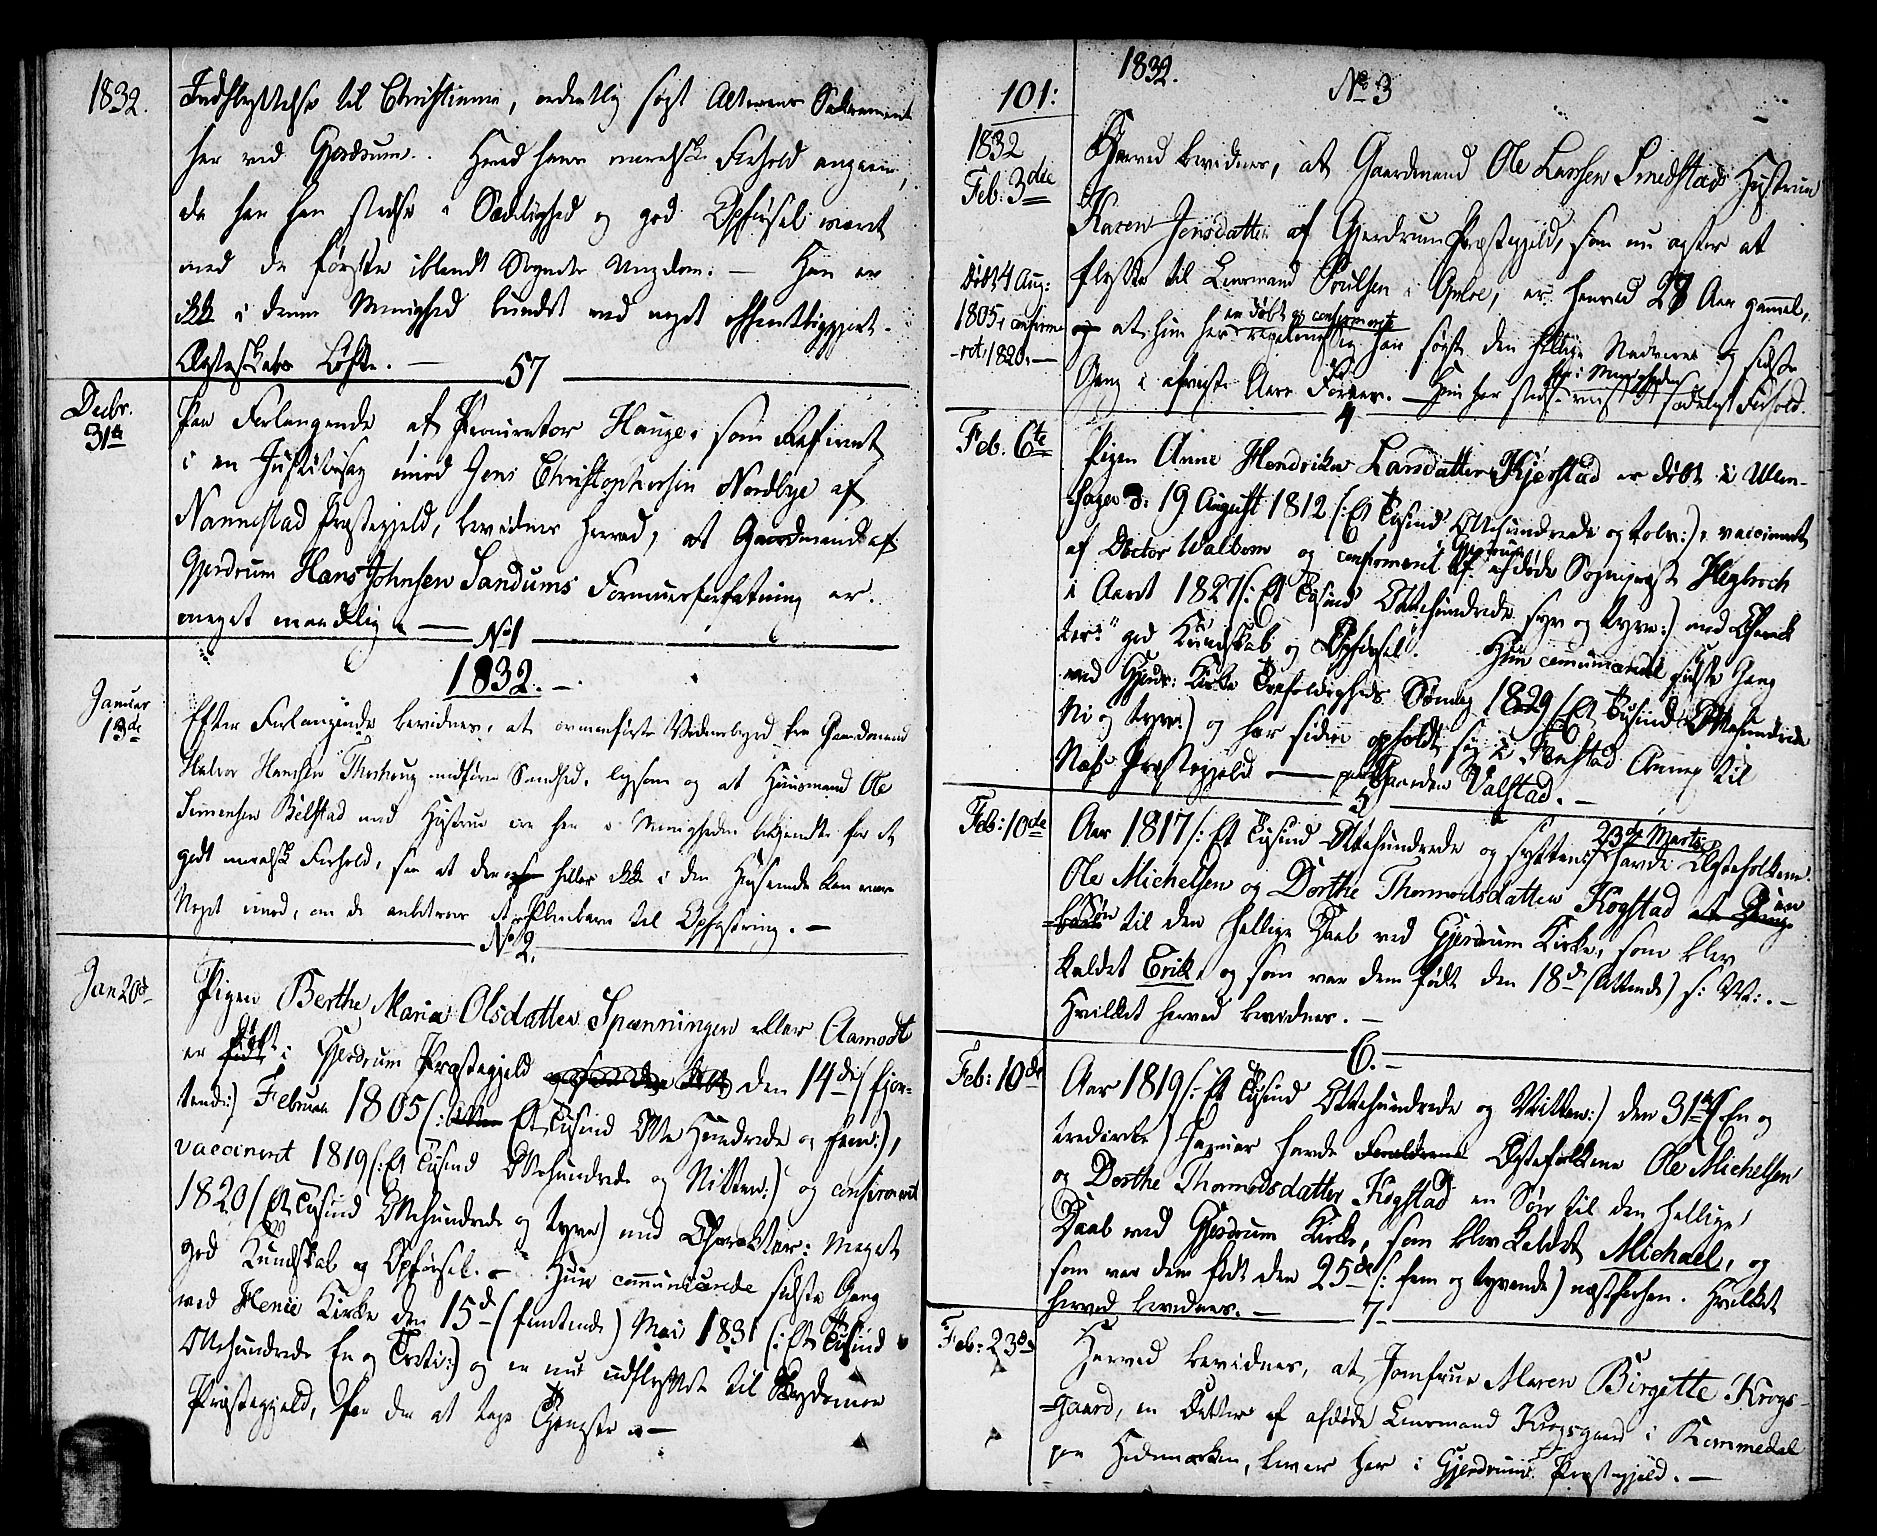 1832.
Indflyttelse til Christiania, ordentlig søgt Alterens Sakrament
her ved Gjerdrum. Hvad hans moralske Forhold angaaer,
da har han stedse i Sædelighed og god Opførsel været
med de første iblandt Sognets Ungdom. — Han er
ikke i denne Menighed bundet ved noget offentliggjort
Ægteskabs Løfte. —
57
Decbr. 31te
Paa Forlangende af Procurator Hauge, som
i en Justitssag imod Jens Christophersen Nordbye af
Nannestad Præstegjeld, bevidnes herved, at Gaardmand af
Gjerdrum Hans Johnsen Sandums Formuesforfatning er
meget maadelig. —
No 1
1832. —
Januar 13de
Efter Forlangende bevidnes, at ovenanførte Vidnesbyrd fra Gaardmand
Halvor Hansen medfører Sandhed, ligesom og at Huusmand Ole
Simensen Bilstad med Hustrue ere her i Menigheden bekjendte for et
godt moralsk Forhold, saa at der heller ikke i den Henseende kan være
Noget imod, om de anbetroes et Pleiebarn til Opfostring. —
No 2.
Jan 20de
Pigen Berthe Maria Olsdatter Spænningen eller Aamodt
er født i Gjerdrum Præstegjeld den 14de (fjor-
tende) Februar 1805 (: Et Tusind Otte Hundrede og fem :),
vaccineret 1819 (: Et Tusind Ottehundrede og Nitten :) og confirmeret
1820 (Et Tusind Ottehundrede og tyve) med Charakter: Meget
god Kundskab og Opførsel. — Hun communicerede sidste Gang
ved Henie Kirke den 15de (femtende) Mai 1831 (: Et Tusind
Ottehundrede En og Tretti :) og er nu udflyttet til
Præstegjeld, for der at tage Tjeneste. —
101:
1832.
No 3
1832
Feb: 3die
Herved bevidnes, at Gaardmand Ole Larssen Smedstads Hustrue
Karen Jensdatter af Gjerdrum Præstegjeld, som nu agter at
flytte til Lensmand Poulsen i , er herved 27 Aar gammel,
født 4 Aug:
1805, confirme-
-ret 1820. —
en døbt og confirmeret
og at hun her har søgt den hellige Nadvere og sidste
Gang i afvigte Aars . — Hun har stedse viist et sædeligt Forhold.
her i Menigheden
4
Feb. 6te
Pigen Anne Hendrikke Larsdatter Kjerstad er døbt i Ullen-
sager d: 19 August 1812 (: Et Tusind Ottehundrede og tolv :), vaccineret
af Doctor Walbom og confirmeret i Gjerdrum af afdøde Sognepræst Heyboch
i Aaret 1827 (: Et Tusind Ottehundrede syv og tyve :) med Charak-
ter: "god Kundskab og Opførsel". Hun communicerede sidste Gang
ved Gjerd: Kirke Trefoldigheds Søndag 1829 (Et Tusind Ottehundrede
Ni og tyve) og har siden opholdt sig i Annex til
Næs Præstegjeld — paa Gaarden Valstad. —
5
Feb: 10de
Aar 1817 (: Et Tusind Ottehundrede og sytten :) 23de Marts havde Ægtefolkene
Ole Michelsen og Dorthe Thormodsdatter Kogstad en
Søn til den hellige Daab ved Gjerdrum Kirke, som blev
kaldet Erik, og som var dem født den 18de (Attende) s: M: . —
Hvilket herved bevidnes. —
6. —
Feb: 10de
Aar 1819 (: Et Tusind Ottehundrede og Nitten :) den 31te (En og
tredivte) Januar havde Forældrene Ægtefolkene Ole Michelsen
og Dorthe Thormodsdatter Kogstad en Søn til den hellige
Daab ved Gjerdrum Kirke, som blev kaldet Michael, og
som var dem født den 25de (: fem og tyvende) næstforhen. Hvilket
herved bevidnes. —
7
Feb: 23de
Herved bevidnes, at Jomfrue Maren Birgitte Krogs-
=gaard, en Datter af afdøde Lensmand Krogsgaard i Rommedal
paa Hedemarken, lever her i Gjerdrums Præstegjeld. —